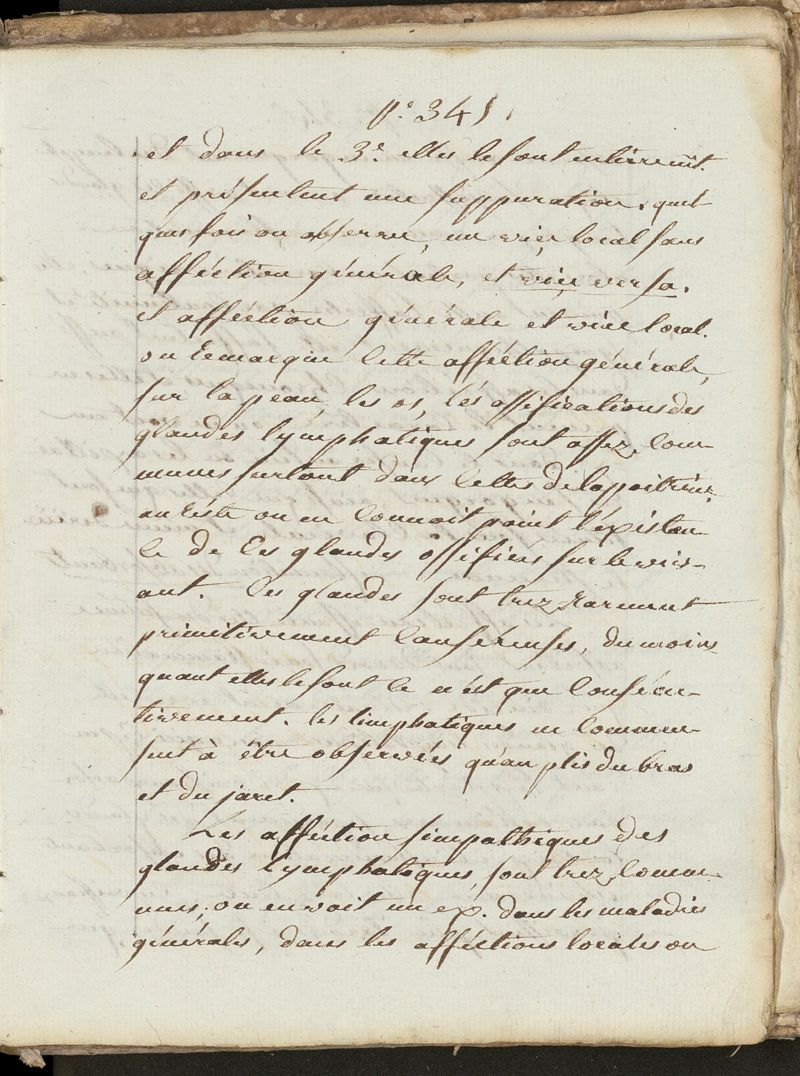 p.e 345
et dans le 3.e elles le sont entièremt.
et présentent une suppuration, quel-
ques fois on observe, un vice local sans
afféction générale, et vice versa.
et afféction générale et vice local.
on remarque cette afféction générale,
sur la peau, les os, les ossifications des
glandes lymphatiques sont assez com-
munes surtout dans celles de la poitrine,
au reste on en connoit point l'existan-
ce de ces glandes ossifiées sur le viv-
ant. Ces glandes sont trez rarement
primitivement cansereuses, du moins
quant elles le sont ce n'est que conséqu-
tivement. les limphatiques ne commen-
sent à être observées qu'au plis du bras
et du jaret.
Les afféction simpathiques des
glandes lymphatiques, sont trez commu-
nes, on en voit un ex. dans les maladies
générales, dans les afféctions locales on